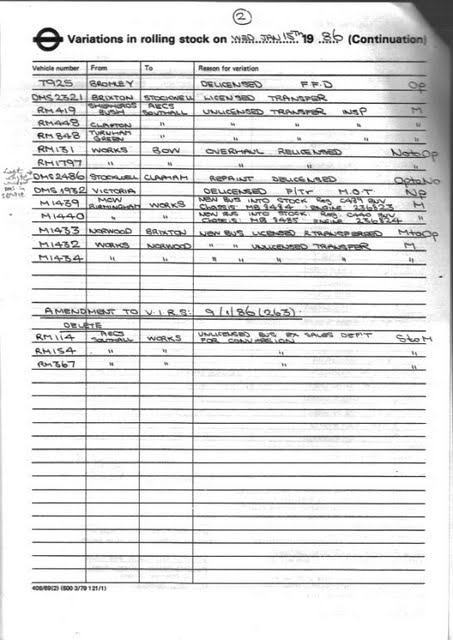 2
Variations in rolling stock on WED JAN 15TH 19 86 (Continuation)
Vehicle number From To Reason for variation
T925 BROMLEY DELICENSED F.F.D Op
DMS2321 BRIXTON STOCKWELL LICENSED TRANSFER
RM419 SHEPHERDS BUSH AECS SOUTHALL UNLICENSED TRANSFER INSP M
RM448 CLAPTON " " " " "
RM848 TURNHAM GREEN " " " " "
RM131 WORKS BOW OVERHAUL RELICENSED NotoOp
RM1797 " " " " "
DMS2486 STOCKWELL CLAPHAM REPAINT DELICENSED OptoNo
DMS1932 VICTORIA DELICENSED P/Tr M.O.T Np
M1439 MCW BIRMINGHAM WORKS NEW BUS INTO STOCK REG C439 BUV
CHASSIS MB 8484 ENGINE 236823 M
M1440 " " NEW BUS INTO STOCK. REG. C440 BUV
CHASSIS: MB 8485 ENGINE 236824 "
M1433 NORWOOD BRIXTON NEW BUS LICENSED & TRANSFERRED MtoOp
M1432 WORKS NORWOOD " " UNLICENSED TRANSFER M
M1434 " " " " " " "
AMENDMENT TO V.I.R.S: 9/1/86 (263)
DELETE
RM114 AECS SOUTHALL WORKS UNLICENSED BUS EX SALES DEPT
FOR CONVERSION StoM
RM154 " " " "
RM367 " " " "
408/69(2) (500 3/79 121/1)